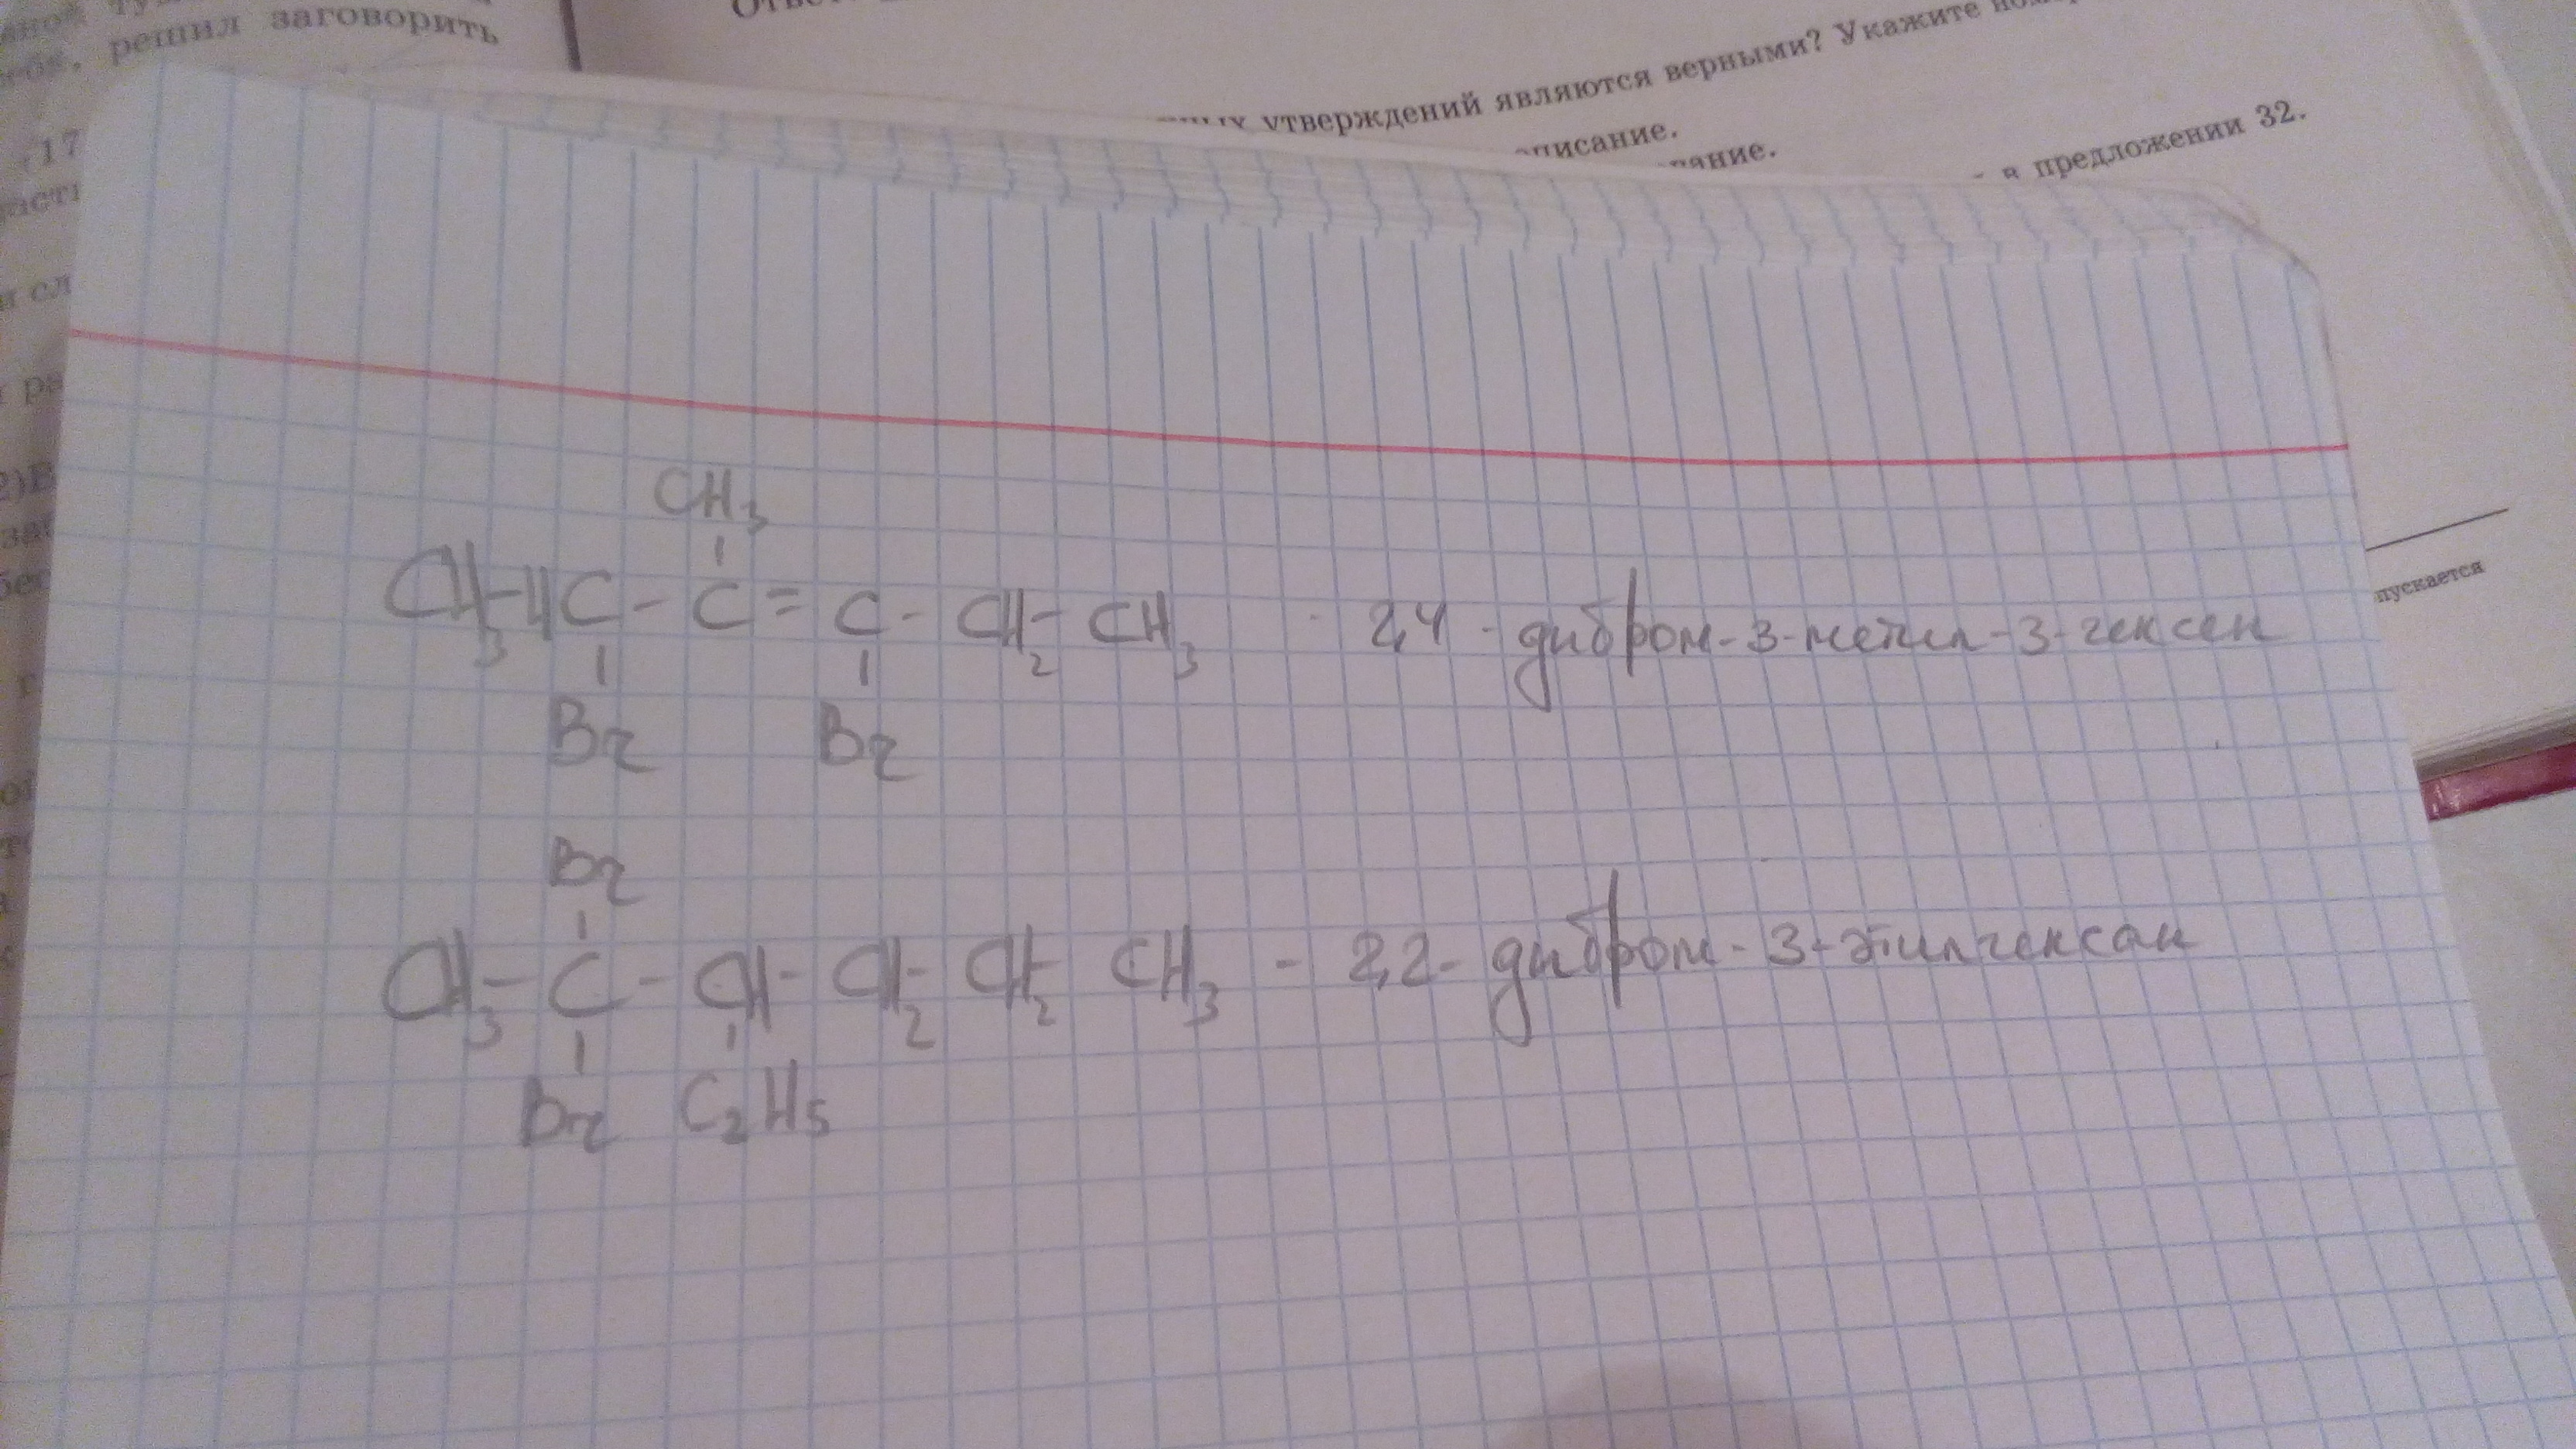 заговорить
решил
утверждений являются верными? Укажите
в предложении 32.
(17
2)
CH3
CH3-HC-C=C-CH2-CH3 - 2,4-дибром-3-метил-3-гексен
Br Br
Br
CH3-C-CH-CH2-CH2 CH3 - 2,2-дибром-3-этилгексан
Br C2H5